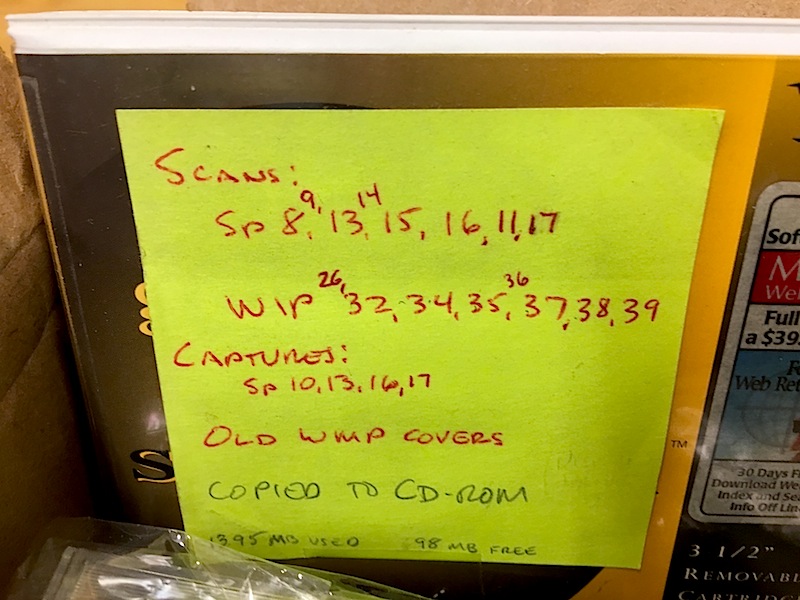 SCANS:
9, 14
Sp 8, 13, 15, 16, 11, 17
26, 36
WIP 32, 34, 35, 37, 38, 39
CAPTURES:
Sp 10, 13, 16, 17
OLD WMP COVERS
COPIED TO CD-ROM
1395 MB USED 98 MB FREE
TM
Full
a $39
Web Ret
30 Days F
Download We
Index and Se
Info Off Lin
3 1/2"
REMOVABL
CARTRIDG